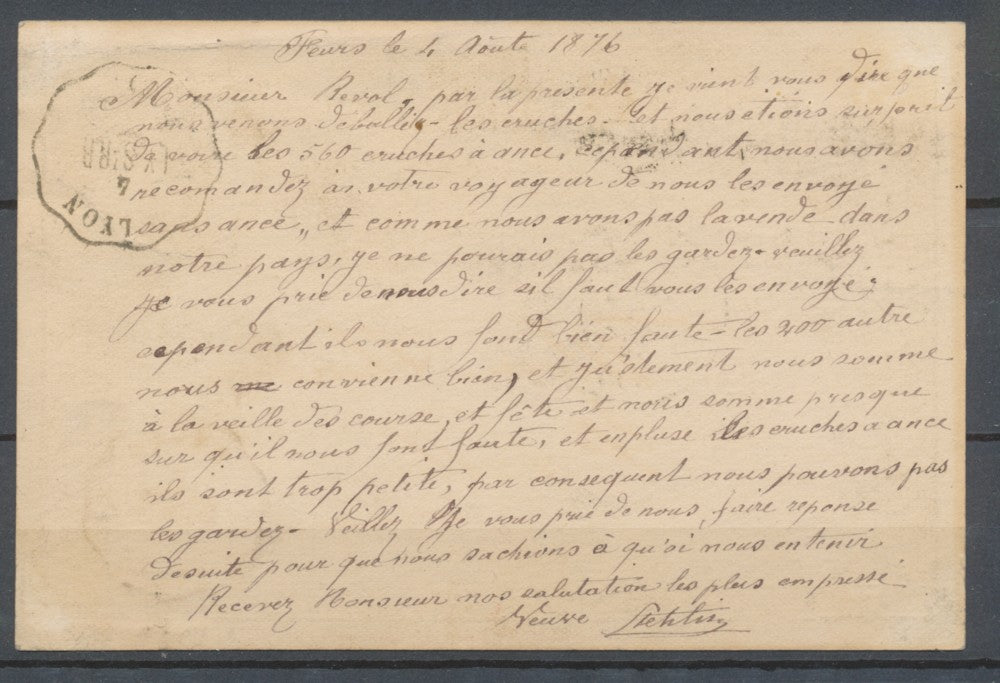 Feurs le 4 Aôute 1876
Monsieur Revol, par la presente je vint vous dire que
nous venons déballer les cruches. Et nous etions surprit
de voire les 560 cruches à ance, cependant nous avons
recomandez à votre voyageur de nous les envoyé
sans ance, et comme nous avons pas la vende dans
notre pays, je ne pourais pas les gardez veuillez
je vous prie de nous dire sil faut vous les envoyé;
cependant ils nous fond bien faute les 200 autre
nous convienne bien, et justement nous somme
à la veille des course, et fête et nous somme presque
sur qu'il nous font faute, et enpluse les cruches a ance
ils sont trop petite, par consequent nous pouvons pas
les gardez. Veillez Je vous prie de nous faire reponse
desuite pour que nous sachions à qu'oi nous en tenir
Recevez Monsieur nos salutation les plus empressé
Veuve
LYON